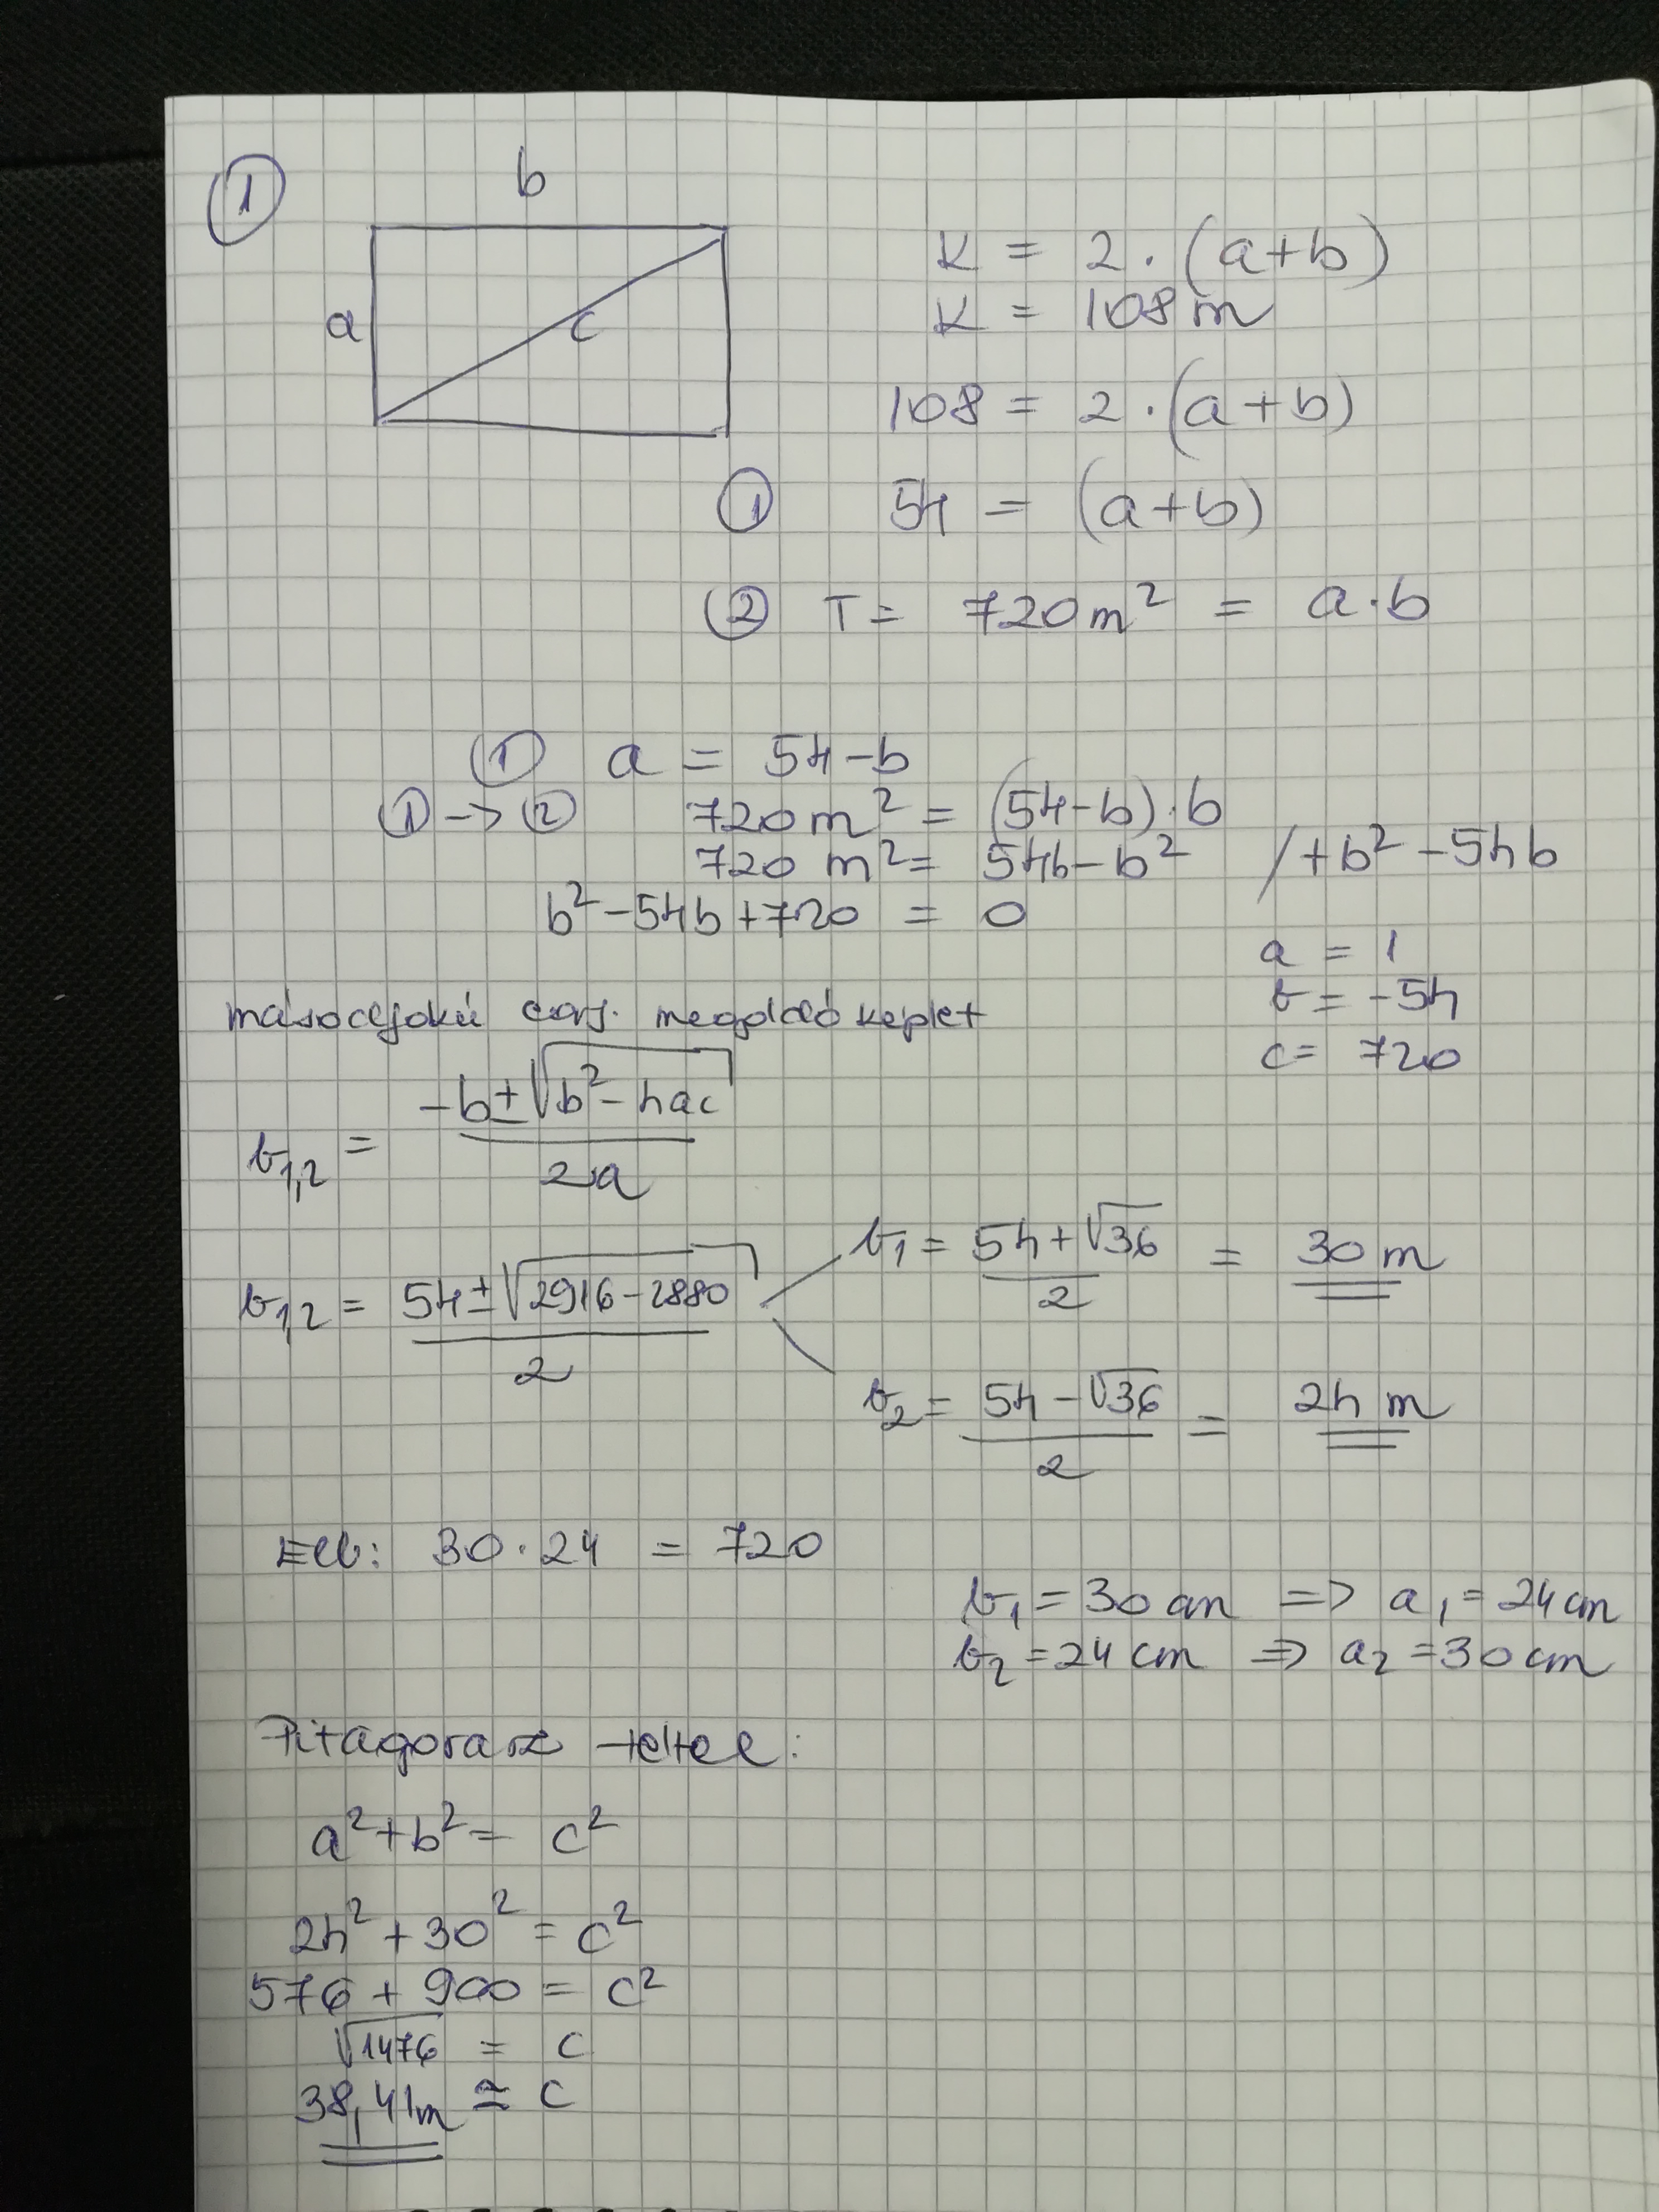 1
b
a
c
K = 2·(a+b)
K = 108 m
108 = 2·(a+b)
① 54 = (a+b)
② T = 720 m² = a·b
① a = 54-b
①→② 720 m² = (54-b)·b
720 m² = 54b-b² /+b² -54b
b²-54b+720 = 0
a = 1
b = -54
c = 720
másodfokú egy. megoldó képlet
b₁,₂ = (-b±√(b²-4ac))/2a
b₁,₂ = (54±√(2916-2880))/2
b₁ = (54+√36)/2 = 30 m
b₂ = (54-√36)/2 = 24 m
Ell: 30·24 = 720
b₁ = 30 cm ⇒ a₁ = 24 cm
b₂ = 24 cm ⇒ a₂ = 30 cm
Pitagorasz tétel:
a²+b² = c²
24²+30² = c²
576+900 = c²
√1476 = c
38,41m ≅ c